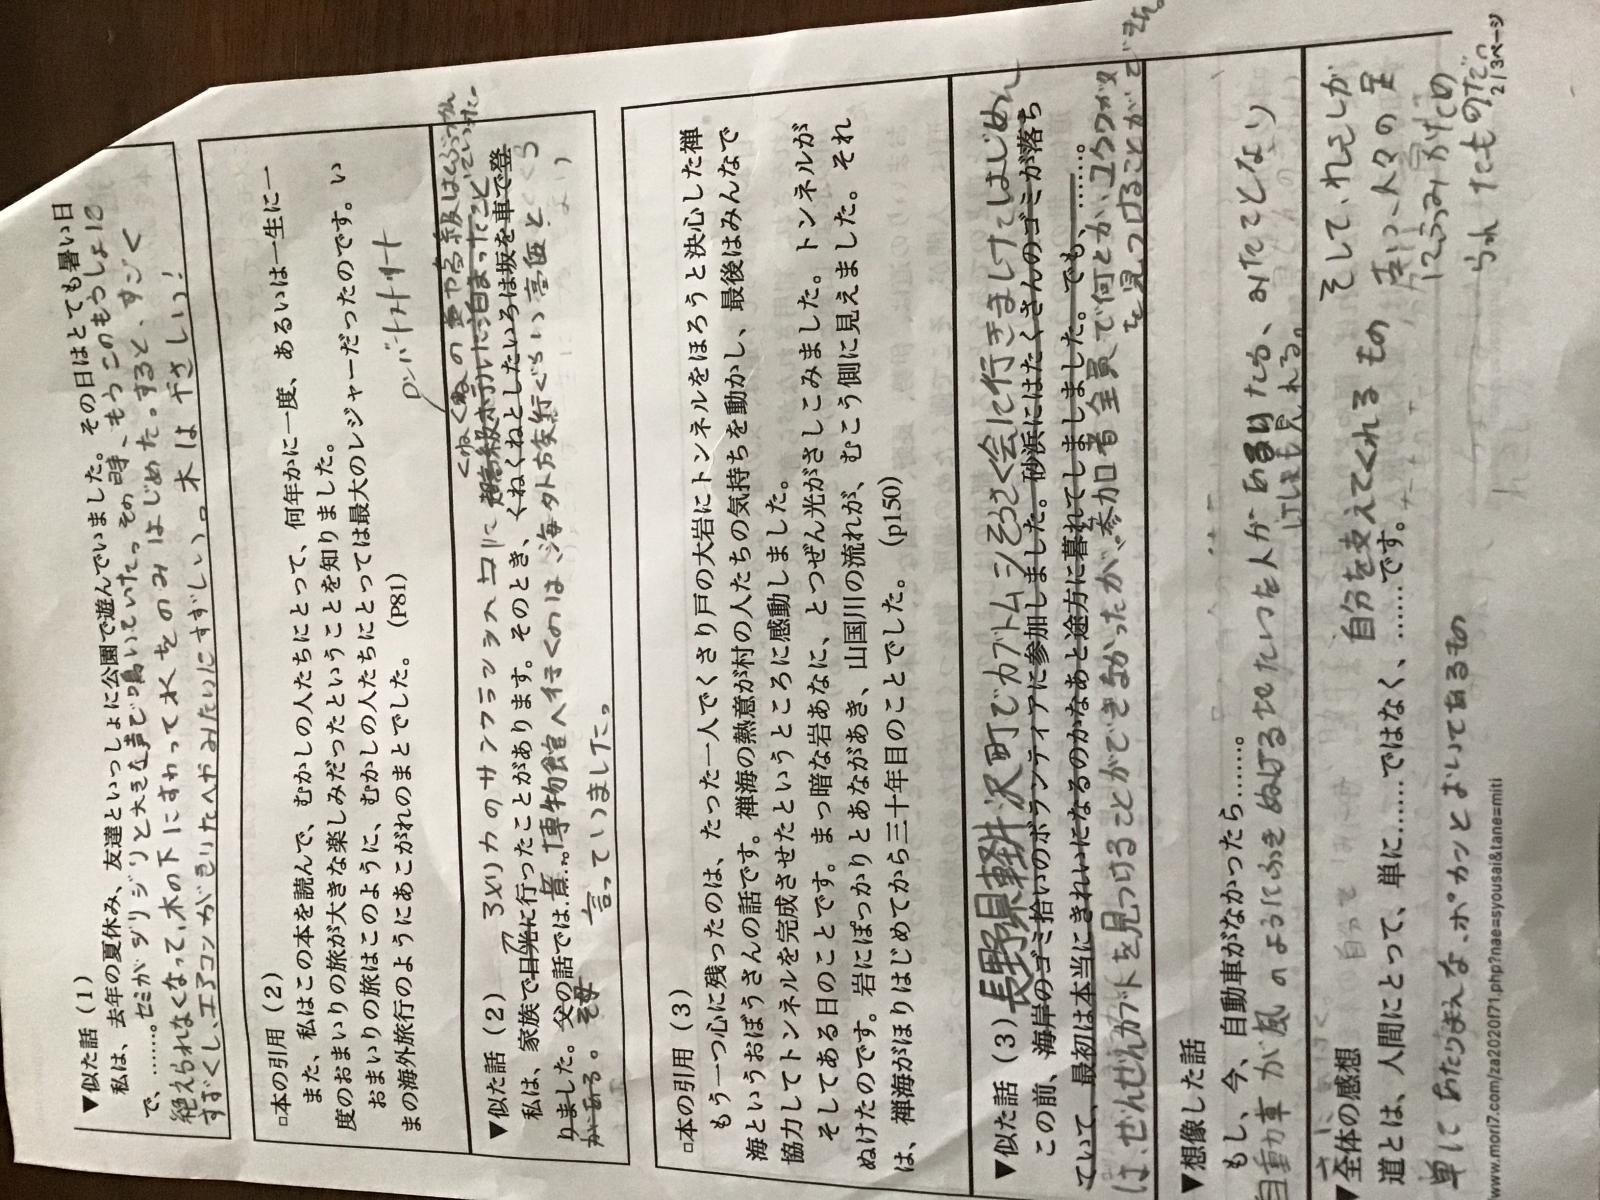 ▼似た話（１）
私は、去年の夏休み、友達といっしょに公園で遊んでいました。その日はとても暑い日
で、………セミがジリジリと大きな声で鳴いていたっその時、もうこのもうしょに
絶えられなくなって、木の下にすわって水をのみはじめた。すると、すごく
すずくし、エアコンがきいたへやみたいにすずしい。木はやさしい！
□本の引用（２）
また、私はこの本を読んで、むかしの人たちにとって、何年かに一度、あるいは一生に一
度のおまいりの旅が大きな楽しみだったということを知りました。
おまいりの旅はこのように、むかしの人たちにとっては最大のレジャーだったのです。い
まの海外旅行のようにあこがれのまとでした。（P81）
ロンバートストリート
▼似た話（２）
私は、家族で日光に行ったことがあります。そのとき、くねくねとしたいろは坂を車で登
りました。父の話では昔…博物館へ行くのは、海外旅行ぐらい高価と
言っていました。
□本の引用（３）
もう一つ心に残ったのは、たった一人でくさり戸の大岩にトンネルをほろうと決心した禅
海というおぼうさんの話です。禅海の熱意が村の人たちの気持ちを動かし、最後はみんなで
協力してトンネルを完成させたというところに感動しました。
そしてある日のことです。まっ暗な岩あなに、とつぜん光がさしこみました。トンネルが
ぬけたのです。岩にぽっかりとあながあき、山国川の流れが、むこう側に見えました。それ
は、禅海がほりはじめてから三十年目のことでした。（p150）
▼似た話（３）長野県軽井沢町でカブトムシそうさく会に行きましてはじめ
この前、海岸のゴミ拾いのボランティアに参加しました。砂浜にはたくさんのゴミが落ち
ていて、最初は本当にきれいになるのかなあと途方に暮れてしまいました。でも、……。
は、ぜんぜんカブトを見つけることができなかったが、参加者全員で何とか、ユクワガタ
を見つけることができました。
▼想像した話
もし、今、自動車がなかったら……。
自動車が風のようにふきぬける地たいつを人がありたら、みたことなり
けしきも見れる。
▼全体の感想
道とは、人間にとって、単に……ではなく、……です。
自分を支えてくれるもの
そして、れきしが
単にあたりまえな、ポカッとおいてあるもの
2/3ページ
www.mori7.com/za2020f71.php?nae=syousai&tane=miti